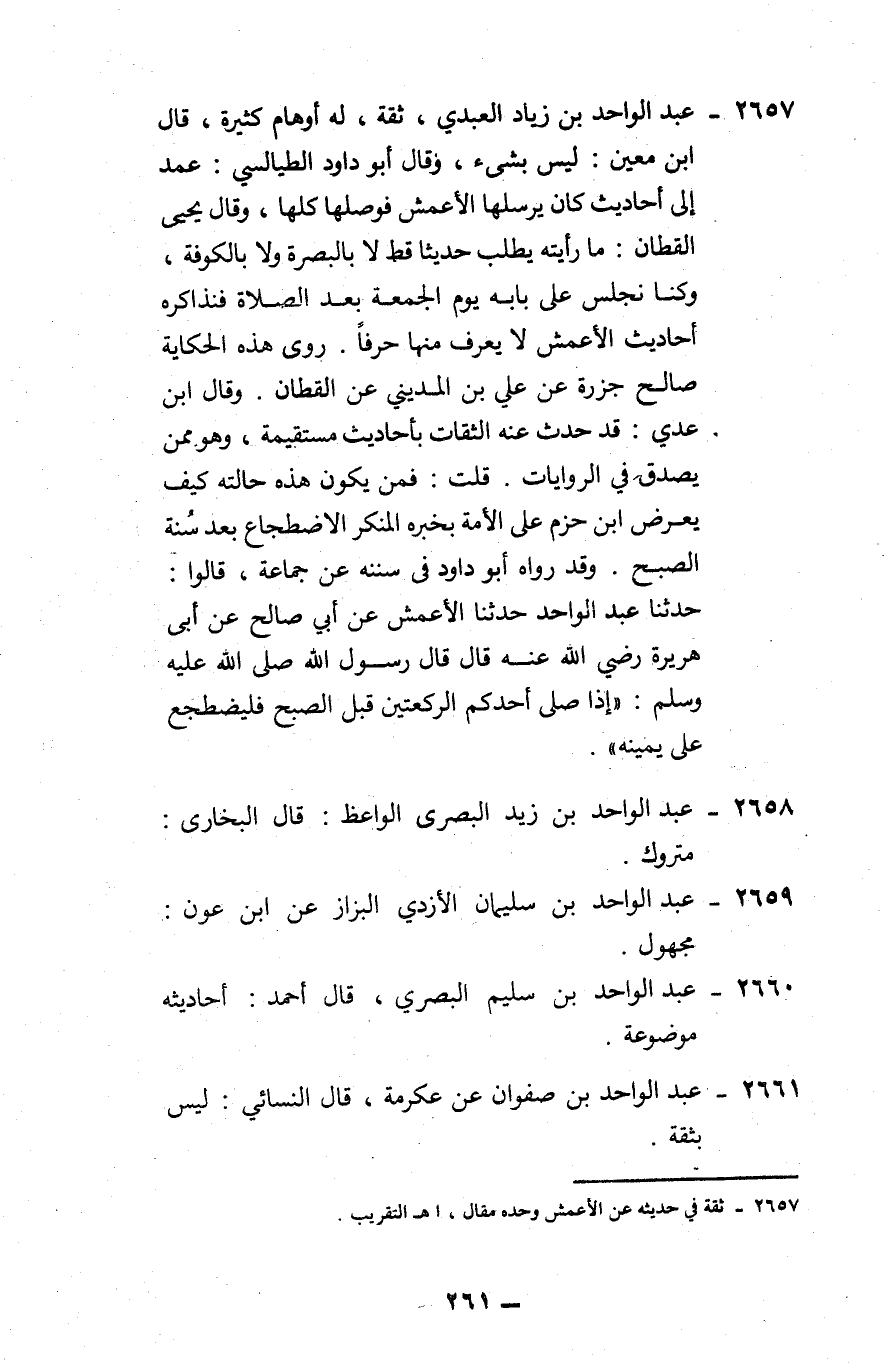 ٢٦٥٧ ـ عبد الواحد بن زياد العبدي ، ثقة ، له أوهام كثيرة ، قال
ابن معين : ليس بشىء ، وقال أبو داود الطيالسي : عمد
إلى أحاديث كان يرسلها الأعمش فوصلها كلها ، وقال يحيى
القطان : ما رأيته يطلب حديثا قط لا بالبصرة ولا بالكوفة ،
وكنا نجلس على بابه يوم الجمعة بعد الصلاة فنذاكره
أحاديث الأعمش لا يعرف منها حرفاً . روى هذه الحكاية
صالح جزرة عن علي بن المديني عن القطان . وقال ابن
عدي : قد حدث عنه الثقات بأحاديث مستقيمة ، وهو ممن
يصدق في الروايات . قلت : فمن يكون هذه حالته كيف
يعرض ابن حزم على الأمة بخبره المنكر الاضطجاع بعد سُنة
الصبح . وقد رواه أبو داود فى سننه عن جماعة ، قالوا :
حدثنا عبد الواحد حدثنا الأعمش عن أبي صالح عن أبى
هريرة رضي الله عنه قال قال رسول الله صلى الله عليه
وسلم : «إذا صلى أحدكم الركعتين قبل الصبح فليضطجع
على يمينه» .
٢٦٥٨ ـ عبد الواحد بن زيد البصرى الواعظ : قال البخارى :
متروك .
٢٦٥٩ ـ عبد الواحد بن سليمان الأزدي البزاز عن ابن عون :
مجهول .
٢٦٦٠ ـ عبد الواحد بن سليم البصري ، قال أحمد : أحاديثه
موضوعة .
٢٦٦١ ـ عبد الواحد بن صفوان عن عكرمة ، قال النسائي : ليس
بثقة .
٢٦٥٧ ـ ثقة في حديثه عن الأعمش وحده مقال ، ا هـ التقريب .
ـ ٢٦١ ـ